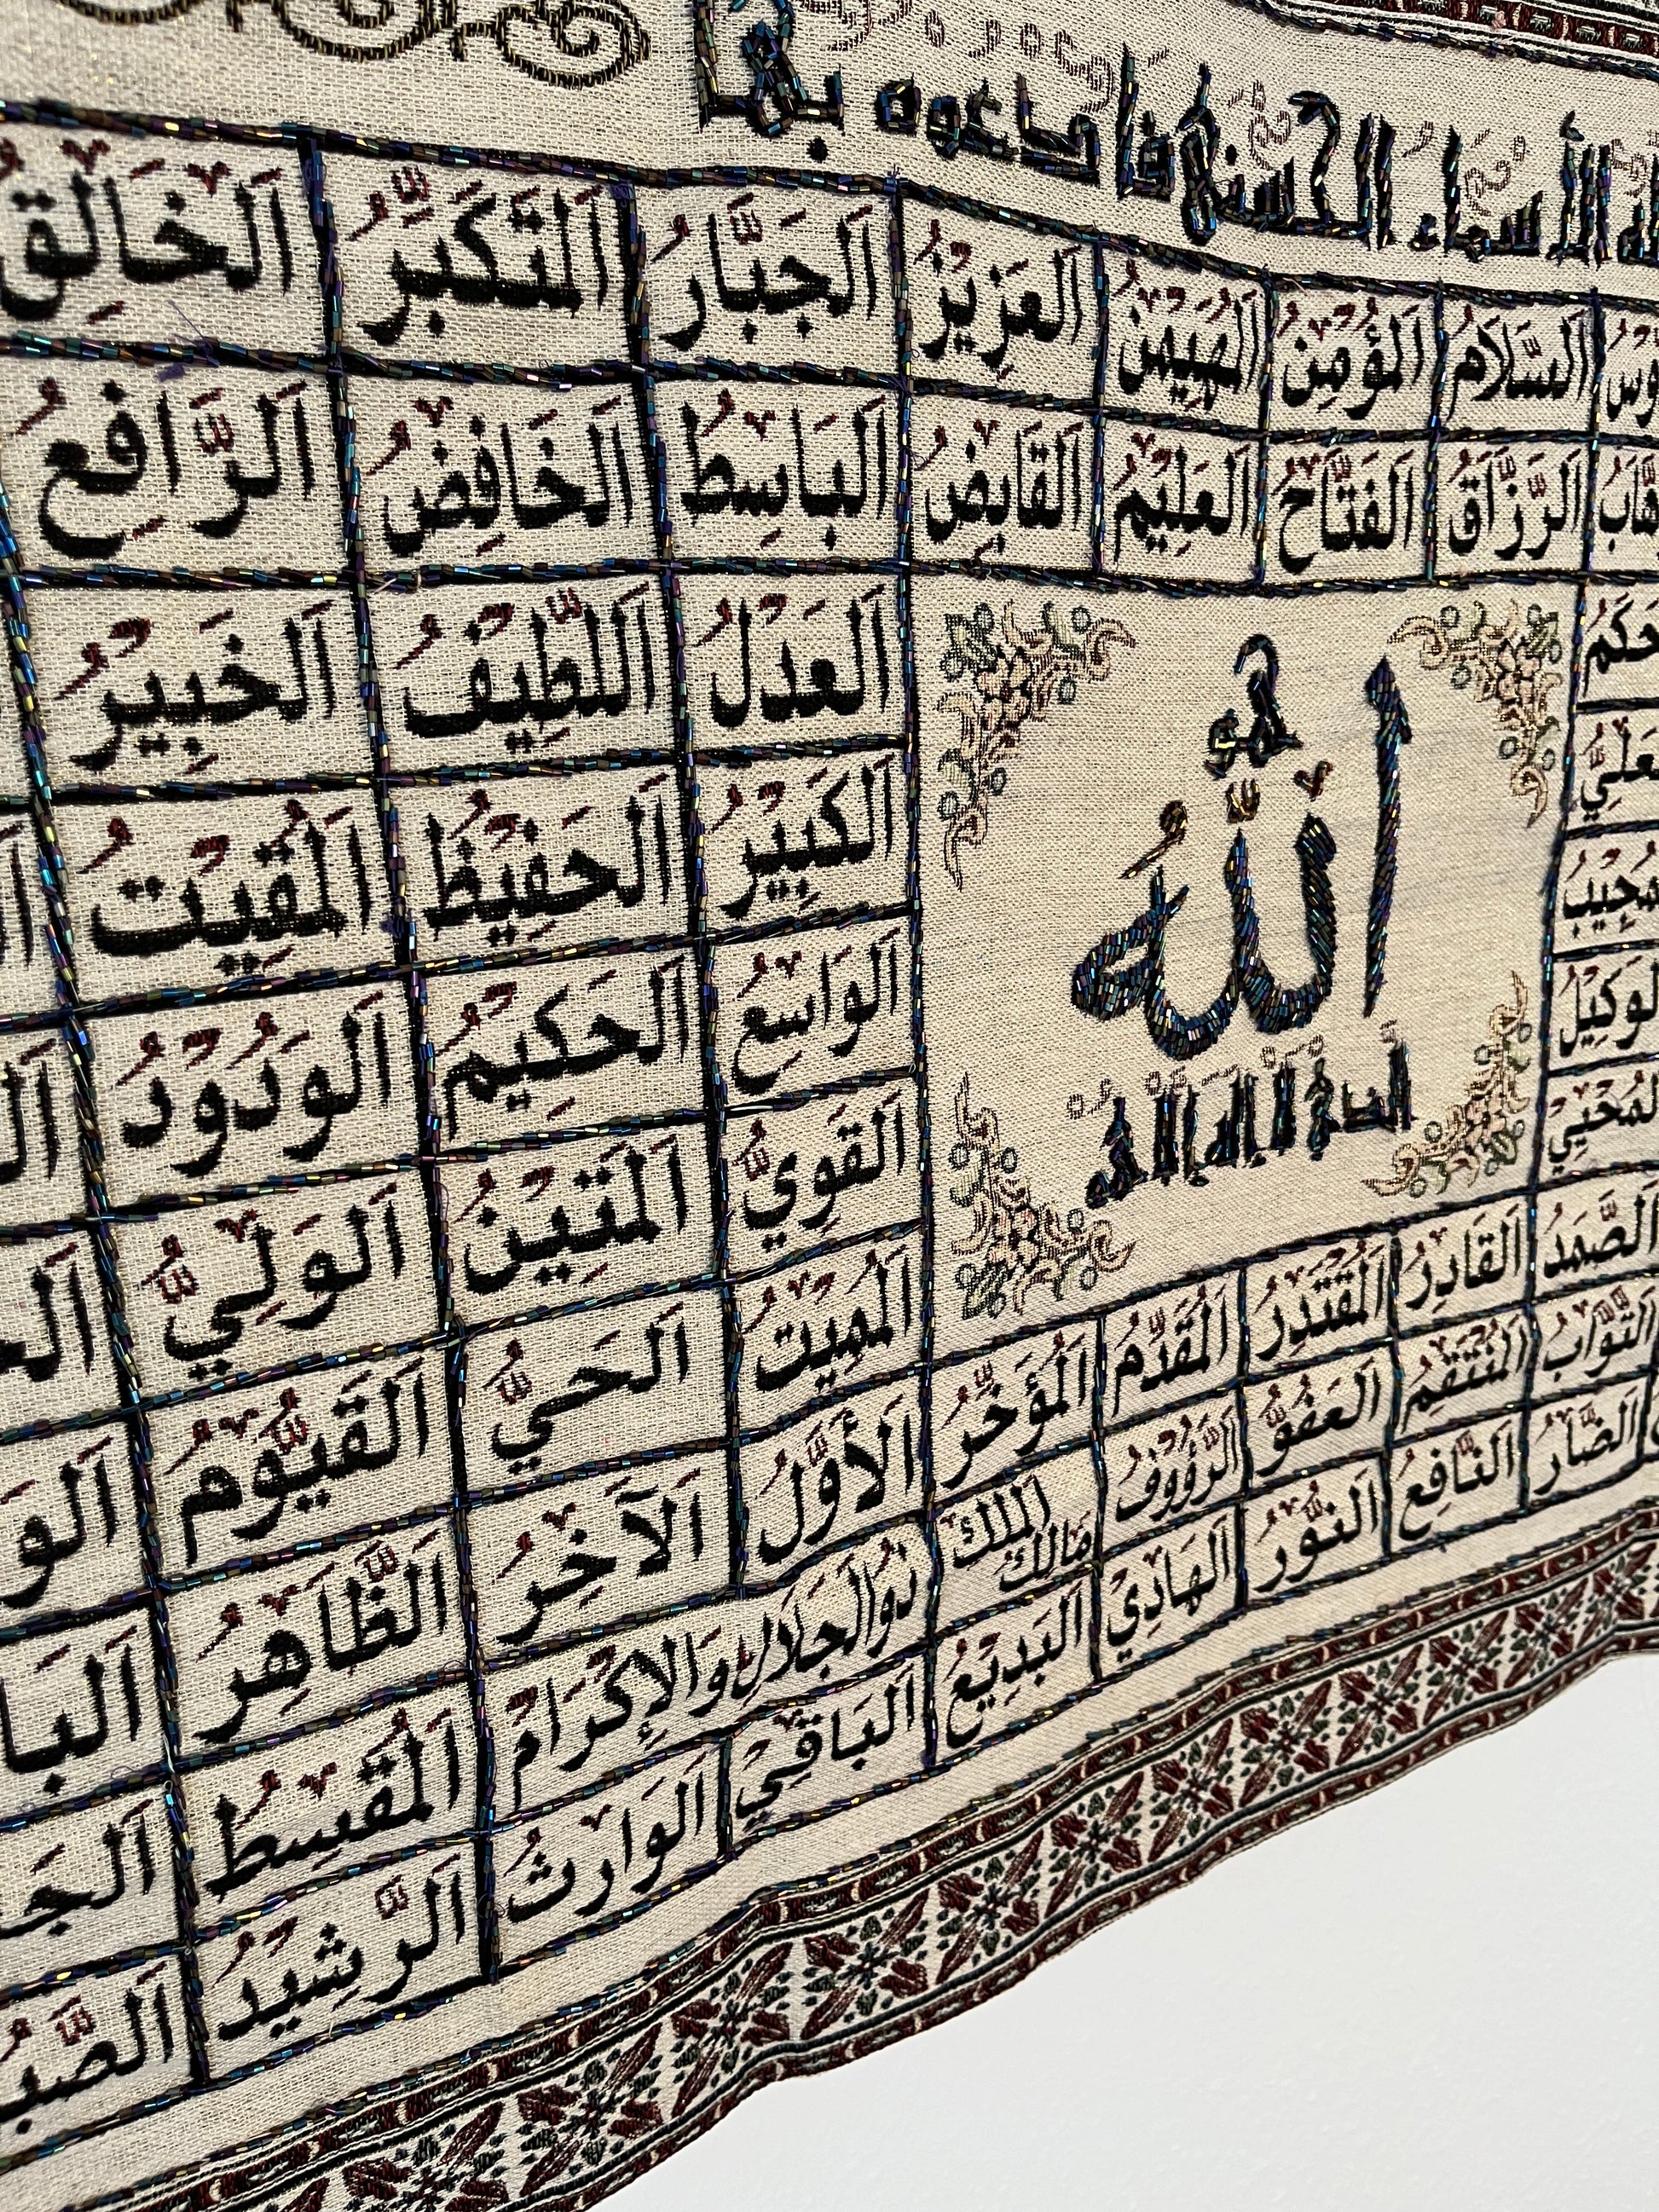 الأسماء الحسنى فادعوه بها
اَلسَّلَامُ اَلْمُؤْمِنُ اَلْمُهَيْمِنُ اَلْعَزِيْزُ اَلْجَبَّارُ اَلْمُتَكَبِّرُ اَلْخَالِقُ
اَلرَّزَّاقُ اَلْفَتَّاحُ اَلْعَلِيْمُ اَلْقَابِضُ اَلْبَاسِطُ اَلْخَافِضُ اَلرَّافِعُ
اَلْعَدْلُ اَللَّطِيْفُ اَلْخَبِيْرُ
اَلْكَبِيْرُ اَلْحَفِيْظُ اَلْمُقِيْتُ
اَلْوَاسِعُ اَلْحَكِيْمُ اَلْوَدُوْدُ
اَلْقَوِيُّ اَلْمَتِيْنُ اَلْوَلِيُّ
هُوَ
اَللّٰهُ
الذي لا إله إلا هو
اَلصَّمَدُ اَلْقَادِرُ اَلْمُقْتَدِرُ اَلْمُقَدِّمُ اَلْمُؤَخِّرُ اَلْأَوَّلُ اَلْآخِرُ اَلظَّاهِرُ
اَلْمُمِيْتُ اَلْحَيُّ اَلْقَيُّوْمُ
اَلتَّوَّابُ اَلْمُنْتَقِمُ اَلْعَفُوُّ اَلرَّؤُوْفُ مَالِكُ الْمُلْكِ ذُوالْجَلَالِ وَالْإِكْرَامِ اَلْمُقْسِطُ
اَلضَّارُّ اَلنَّافِعُ اَلنُّوْرُ اَلْهَادِيْ اَلْبَدِيْعُ اَلْبَاقِيْ اَلْوَارِثُ اَلرَّشِيْدُ